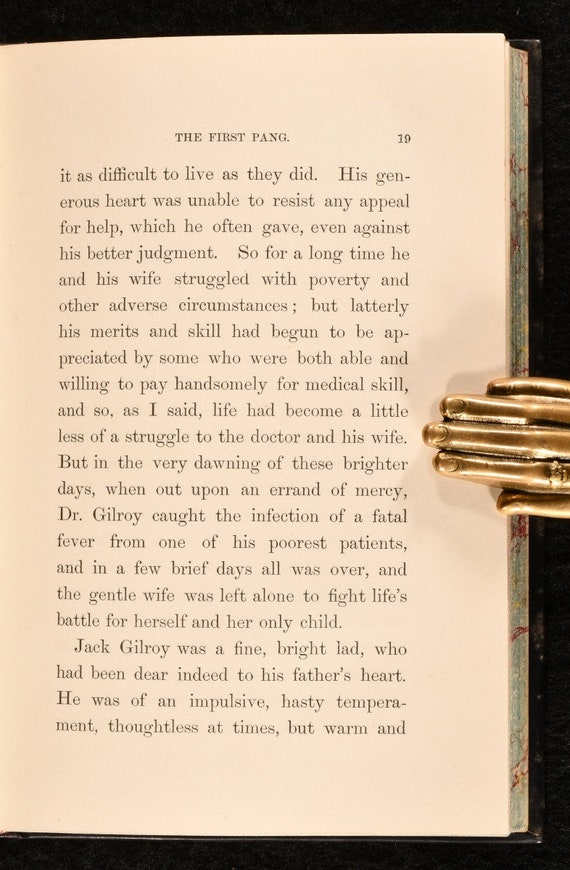 THE FIRST PANG. 19
it as difficult to live as they did. His gen-
erous heart was unable to resist any appeal
for help, which he often gave, even against
his better judgment. So for a long time he
and his wife struggled with poverty and
other adverse circumstances; but latterly
his merits and skill had begun to be ap-
preciated by some who were both able and
willing to pay handsomely for medical skill,
and so, as I said, life had become a little
less of a struggle to the doctor and his wife.
But in the very dawning of these brighter
days, when out upon an errand of mercy,
Dr. Gilroy caught the infection of a fatal
fever from one of his poorest patients,
and in a few brief days all was over, and
the gentle wife was left alone to fight life's
battle for herself and her only child.
Jack Gilroy was a fine, bright lad, who
had been dear indeed to his father's heart.
He was of an impulsive, hasty tempera-
ment, thoughtless at times, but warm and